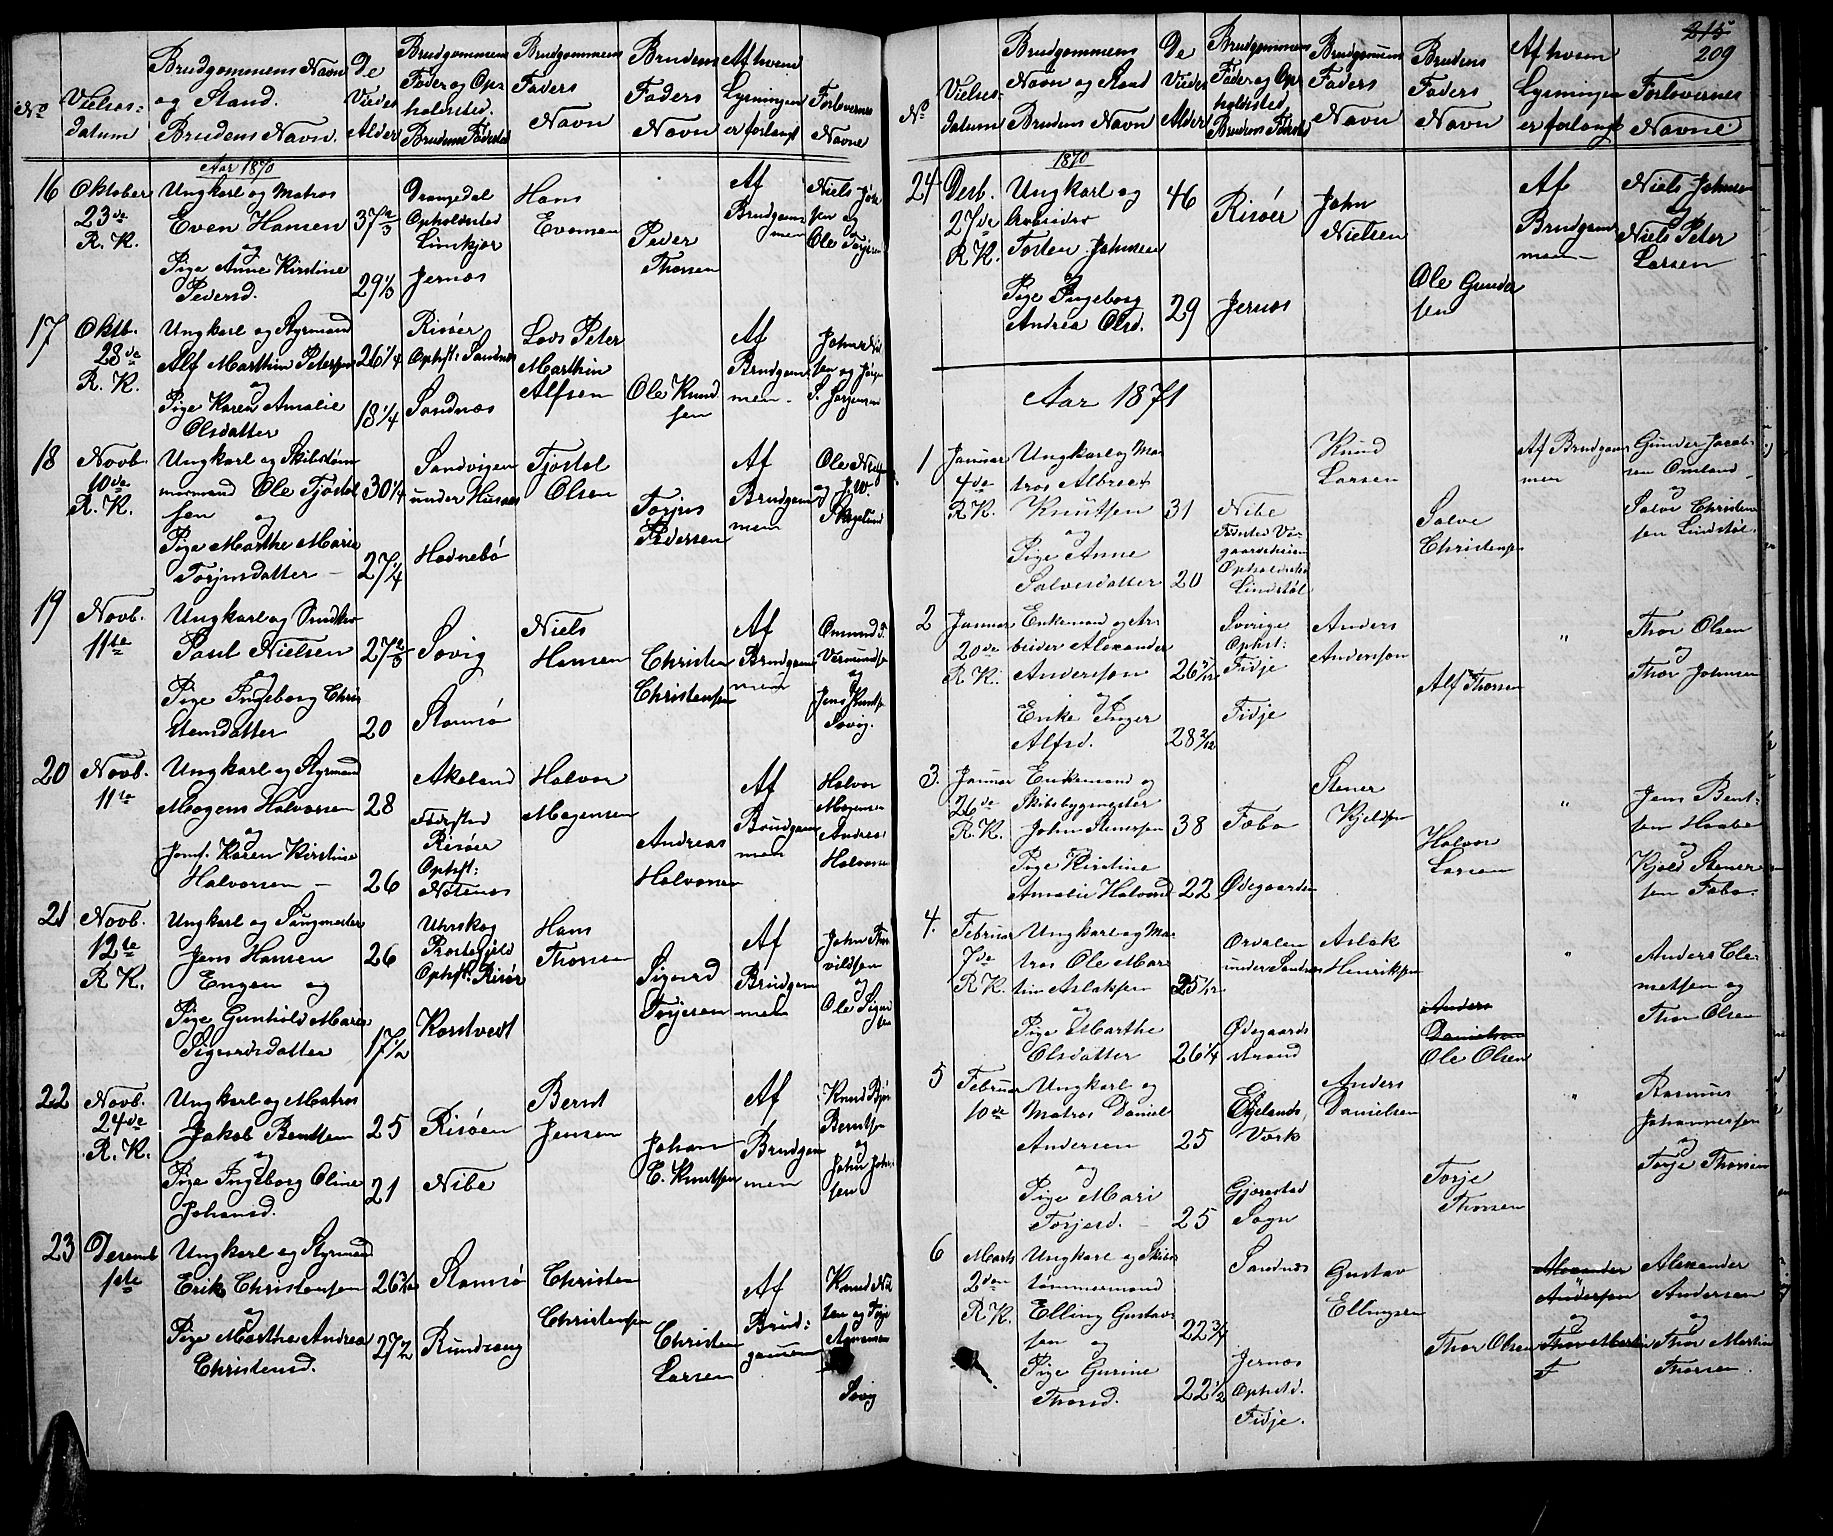 No
Vielses-
datum
Brudgommens Navn
og Stand.
Brudens Navn.
De
Viedes
Alder
Brudgommens
Føde og Op-
holdsted.
Brudens Fødested
Brudgommens
Faders
Navn
Brudens
Faders
Navn
Af hvem
Lysningen
er forlangt
Forlovernes
Navne
Aar 1870
16
Oktober
23de
R. K.
Ungkarl og Matros
Even Hansen
og
Pige Anne Kirstine
Pedersd.
37 2/3
29 1/3
Drangedal
Opholdsted
Limkjær
Jernæs
Hans
Evensen
Peder
Thorsen
Af
Brudgom-
men
Niels Joh
sen og
Ole Torjus
17
Oktb.
28de
R. K.
Ungkarl og Styrmand
Alf Marthin Petersen
og
Pige Karen Amalie
Olsdatter
26 1/4
18 1/4
Risøer
Ophst: Sandnæs
Sandnæs
Lods Peter
Marthin
Alfsen
Ole Knud
sen
Af
Brudgom-
men
John Niel
sen og Jørgen
S. Jørgensen
18
Novb.
10de
R. K.
Ungkarl og Skibstøm
mermand Ole Tjøstol
sen og
Pige Marthe Marie
Torjusdatter
30 1/4
27 1/4
Sandvigen
under Husaas
Hødnebø
Tjøstol
Olsen
Torjus
Pedersen
Af
Brudgom
men
Ole Niels
og J. W.
Skoglund
19
Novb.
11te
Ungkarl og Snedker
Paul Nielsen
og
Pige Ingeborg Chri
stensdatter
27 2/3
20
Søvig
Stamsø
Niels
Hansen
Christen
Christensen
Af
Brudgom
men
Omund T.
Vermundsen
og
Jens Knuds
Søvig.
20
Novb.
11te
Ungkarl og Styrmand
Mogens Halvorsen
og
Jomf. Karen Kirstine
Halvorsen
28
26
Akeland
Fødested
Risøer
Ophst:
Nøtenæs
Halvor
Mogensen
Andreas
Halvorsen
Af
Brudgom
men
Halvor
Mogensen
Andreas
Halvorsen
21
Novb.
12te
R. K.
Ungkarl og Saugmester
Jens Hansen
Engen og
Pige Gunhild Marie
Sigurdsdatter
26
17 1/2
Urskog
Præstegjeld
Ophst: Risør
Korstvedt
Hans
Thorsen
Sigurd
Torjesen
Af
Brudgom
men
John Thor
vildsen
og
Ole Sigurd
sen
22
Novb.
24de
R. K.
Ungkarl og Matros
Jakob Berntsen
og
Pige Ingeborg Oline
Johansd.
25
21
Risøen
Nibe
Bernt
Jensen
Johan
C. Knutsen
Af
Brudgom
men
Knud Bjør
Berntsen
og
John Joh-
sen
23
Decemb
1ste
Ungkarl og Styrmand
Erik Christensen
og
Pige Marthe Andrea
Christensd.
27 1/2
Stamsø
Rundvang
Christen
Christensen
Christen
Larsen
Af
Brud-
gommen
Knud Nil
sen og Terje
Søvig
215
209
No
Vielses-
datum
Brudgommens
Navn og Stand
Brudens Navn
De
Viedes
Alder
Brudgommens
Føde og Op-
holdsted,
Brudens Fødested
Brudgommens
Faders
Navn
Brudens
Faders
Navn
Af hvem
Lysningen
er forlangt
Forlovernes
Navne
1870
24
Desb.
27de
R. K.
Ungkarl og
Arbeider
Tosten Johnsen
og
Pige Ingeborg
Andrea Olsd.
46
29
Risøer
Jernæs
John
Nielsen
Ole Gunder
sen
Af
Brudgom
men
Niels Johnsen
og
Niels Peter
Larsen
Aar 1871
1
Januar
4de
R. K.
Ungkarl og Ma
tros Albreet
Knutsen
og
Pige Anne
Salvesdatter
31
20
Nibe
Fødested Ve-
gaardsheien
Opholdsted
Lindstøl
Knud
Larsen
Salve
Christensen
Af Brudgom
men
Gunder Jacob-
sen Omland
og
Salve Christen
sen Lindstøl
2
Januar
20de
R. K.
Enkemand og Ar
beider Alexander
Andersson
og
Enke Inger
Alfsd.
28 2/12
Sverige
Ophst:
Fidje
Fidje
Anders
Andersson
Alf Thorsen
"
Thor Olsen
og
Thor Johnsen
3.
Januar
26de
R. K.
Enkemand og
Skibsbygmester
John Stenersen
og
Pige Kirstine
Amalie Halvorsd
38
22
Fæbo
Ødegaarden
Stener
Kjeldsen
Halvor
Larsen
"
Jens Bent-
sen Haabe
og
Kjeld Stener
sen Fæbo.
4.
Februar
7de
R. K.
Ungkarl og Ma
tros Ole Mar
tin Aslaksen
og
Pige Marthe
Olsdatter
26 1/4
Ørvalen
under Sandnæs
Ødegaards
strand
Aslak
Henriksen
Anders
Danielsen
Ole Olsen
"
Anders Cle-
metsen og
Thor Olsen
5
Februar
10de
Ungkarl og
Matros Daniel
Andersen
og
Pige Mari
Torjesd.
25
25
Egelands
Værk
Gjerestad
Sogn
Anders
Danielsen
Torje
Thorsen
"
Rasmus
Johannessen
og
Torje Thorsen
6
Marts
2den
R. K.
Ungkarl og Skibs
tømmermand
Elling Gustav-
sen og
Pige Gurine
Thorsd.
22 3/4
22 1/2
Sandnæs
Jernæs
Ophold.
Fidje.
Gustav
Ellingsen
Thor Olsen
Alexander
Andersen
og
Thor Martin
T
Alexander
Andersen
og
Thor Martin
Thorsen.